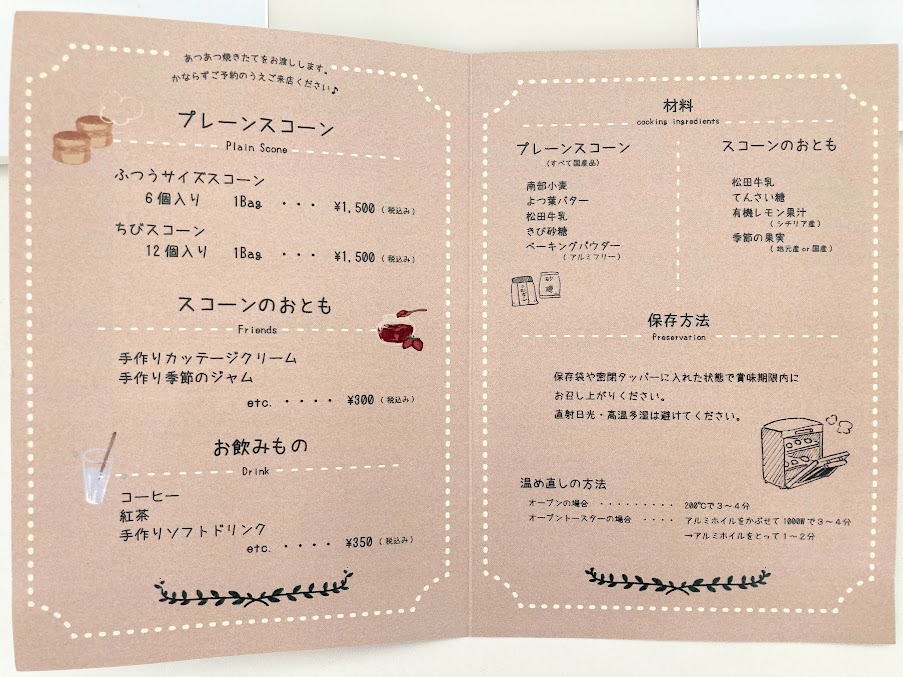 あつあつ焼きたてをお渡しします。
かならずご予約のうえご来店ください♪
プレーンスコーン
Plain Scone
ふつうサイズスコーン
6個入り 1Bag ・・・ ¥1,500 (税込み)
ちびスコーン
12個入り 1Bag ・・・ ¥1,500 (税込み)
スコーンのおとも
Friends
手作りカッテージクリーム
手作り季節のジャム
etc. ・・・・ ¥300 (税込み)
お飲みもの
Drink
コーヒー
紅茶
手作りソフトドリンク
etc. ・・・・ ¥350 (税込み)
材料
cooking ingredients
プレーンスコーン
(すべて国産品)
南部小麦
よつ葉バター
松田牛乳
きび砂糖
ベーキングパウダー
(アルミフリー)
スコーンのおとも
松田牛乳
てんさい糖
有機レモン果汁
(シチリア産)
季節の果実
(地元産or国産)
保存方法
Preservation
保存袋や密閉タッパーに入れた状態で賞味期限内に
お召し上がりください。
直射日光・高温多湿は避けてください。
温め直しの方法
オーブンの場合 ・・・・・・・・・ 200℃で3〜4分
オーブントースターの場合 ・・・・ アルミホイルをかぶせて1000Wで3〜4分
→アルミホイルをとって1〜2分